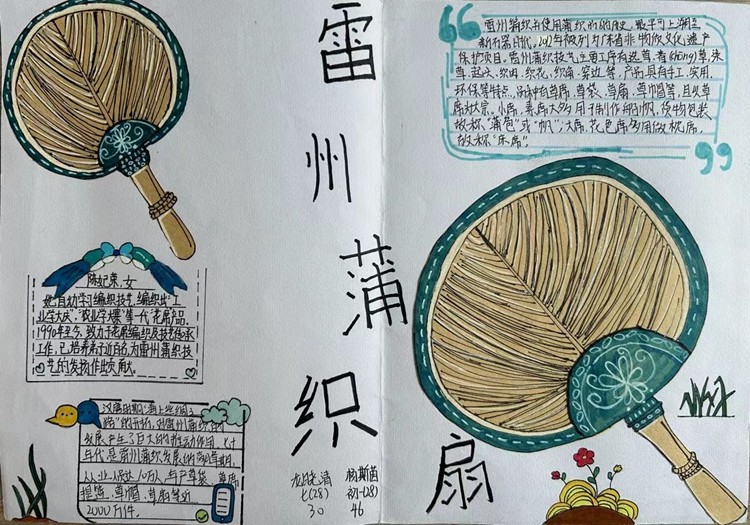 雷
州
蒲
织
扇
雷州蒲织书使用蒲织的历史，最早可上溯至
新石器时代。2012年被列为广东省非物质文化遗产
保护项目。雷州蒲织技艺主要工序有选草、舂(chōng)草、染
草、起头、织田、织花、织角、穿边等，产品具有手工、实用、
环保等特点，品种有草席、草袋、草扇、草帽等，且以草
席为大宗，小席、素席大多用于制作船帆、货物包装
故称"蒲包"或"帆"；大席、花色席多用做枕席，
故称"床席"。
陈妃荣，女
她自幼学习编织技艺，编织出"工
业学大庆"、"农业学大寨"等一代花席产品，
1990年至今，致力于花席编织及技艺传承
工作，已培养弟子近百名，为雷州蒲织技
艺的发扬作出贡献。
汉唐时期"海上丝绸之
路"的开拓，对雷州蒲织的
发展产生了巨大的推动作用。
年代是雷州蒲织发展的
从业人员达10万人，年产草袋、草席、
提篮、草帽、草扇等近
2000万件。
清
七(28)
30
杨斯茵
初一(28)
46